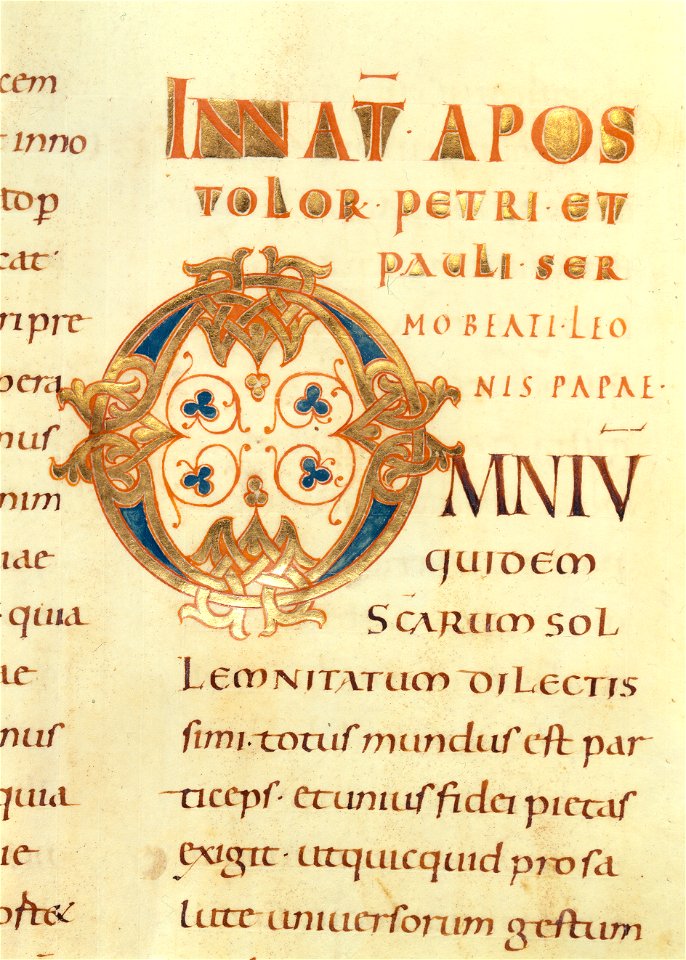 cem
inno
top
cat
ripre
pera
nus
nim
iae
quia
ae
nus
quia
ie
ofte
IN NAT̅· APOS
TOLOR· PETRI· ET
PAULI· SER
MO BEATI· LEO
NIS PAPAE·
OMNIV̅
QUIDEM
SC̅ARUM SOL
LEMNITATUM DILECTIS
simi· totus mundus est par
ticeps· et unius fidei pietas
exigit· ut quicquid pro sa
lute universorum gestum